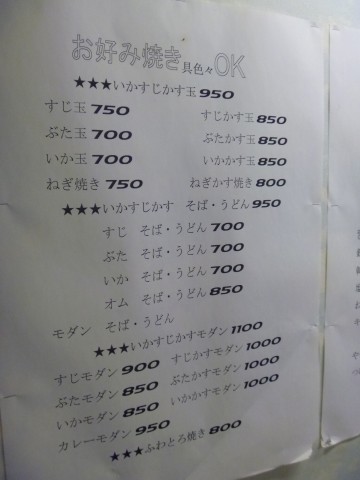 お好み焼き 具色々OK
★★★いかすじかす玉950
すじ玉750 すじかす玉850
ぶた玉700 ぶたかす玉850
いか玉700 いかかす玉850
ねぎ焼き750 ねぎかす焼き800
★★★いかすじかす そば・うどん950
すじ そば・うどん700
ぶた そば・うどん700
いか そば・うどん700
オム そば・うどん850
モダン そば・うどん
★★★いかすじかすモダン1100
すじモダン900 すじかすモダン1000
ぶたモダン850 ぶたかすモダン1000
いかモダン850 いかかすモダン1000
カレーモダン950
★★★ふわとろ焼き800